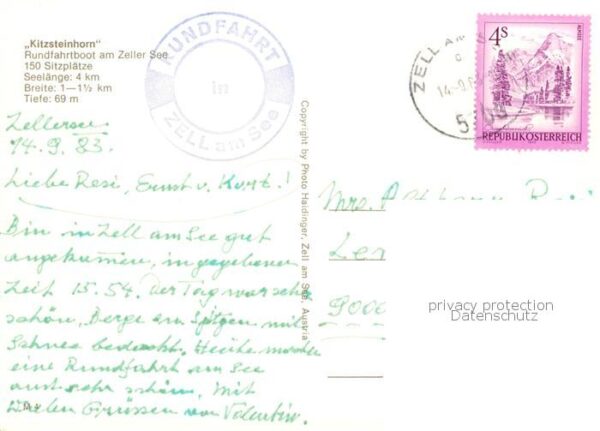 „Kitzsteinhorn"
Rundfahrtboot am Zeller See
150 Sitzplätze
Seelänge: 4 km
Breite: 1—1½ km
Tiefe: 69 m
RUNDFAHRT
in
ZELL am See
ZELL AM S
4S
REPUBLIK ÖSTERREICH
Zellersee
14.9.83.
Liebe Resi, Ernst u. Kurt!
Bin in Zell am See gut
angekommen, in gegebener
Zeit 15.54. Der Tag war sehr
schön, Berge am Spitzen mit
Schnee bedeckt. Heute machen
eine Rundfahrt am See
auch sehr schön. Mit
vielen Grüssen von Valentin.
Copyright by Photo Haidinger, Zell am See, Austria
privacy protection
Datenschutz